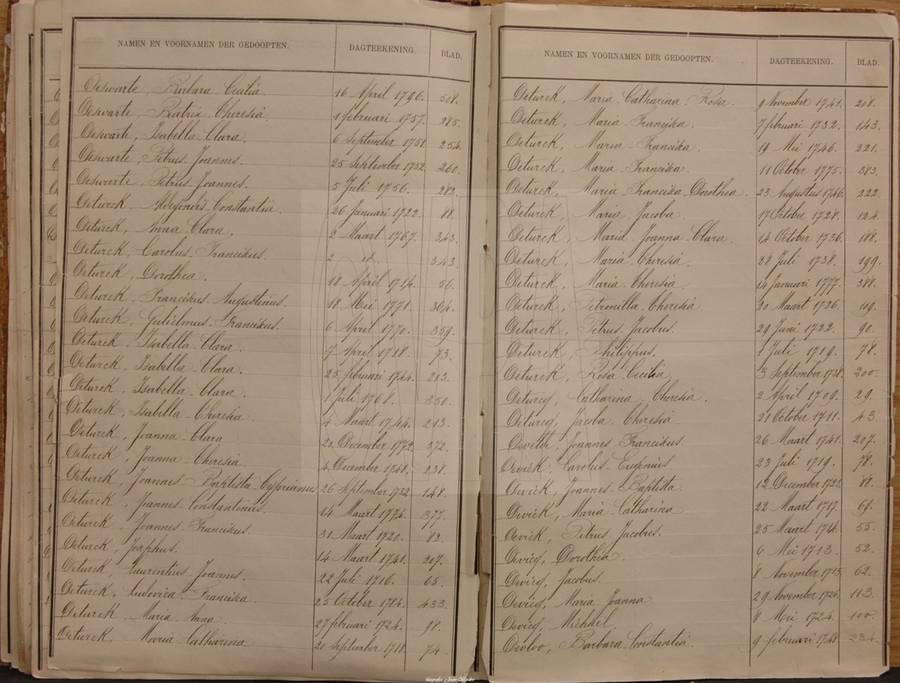 NAMEN EN VOORNAMEN DER GEDOOPTEN. DAGTEEKENING. BLAD.
Deswarte, Barbara Cecilia 16 April 1796. 508.
Deswarte, Beatrix Theresia 1 februari 1757. 285.
Deswarte, Isabella Clara. 6 September 1751. 254.
Deswarte, Petrus Joannes. 25 September 1752. 260.
Deswarte, Petrus Joannes. 5 Juli 1756. 282.
Deturck Constantia. 26 Januari 1722. 88.
Deturck, Anna Clara. 2 Maart 1767. 343.
Deturck, Carolus Franciskus. 2 id. 343.
Deturck, Dorothea. 18 April 1714. 56.
Deturck, Franciskus Augustinus. 18 Mei 1771. 364.
Deturck, Gulielmus Franciskus. 6 April 1770. 359.
Deturck, Isabella Clara. 7 April 1718. 73.
Deturck, Isabella Clara. 25 februari 1744. 213.
Deturck, Isabella Clara. 1 Juli 1768. 350.
Deturck, Isabella Theresia. 4 Maart 1744. 213.
Deturck, Joanna Clara. 20 December 1772. 372.
Deturck, Joanna Theresia. 4 December 1748. 238.
Deturck, Joannes Baptista Cyprianus 26 September 1732. 148.
Deturck, Joannes Constantinus. 14 Maart 1774. 377.
Deturck, Joannes Franciskus. 31 Maart 1720. 82.
Deturck, Josephus. 14 Maart 1741. 207.
Deturck, Laurentius Joannes. 22 Juli 1716. 65.
Deturck, Ludovica Franciska. 25 October 1784. 433.
Deturck Maria Anna. 27 februari 1724. 98.
Deturck, Maria Catharina 20 September 1718. 74.
NAMEN EN VOORNAMEN DER GEDOOPTEN. DAGTEEKENING. BLAD.
Deturck, Maria Catharina Rosa. 9 November 1741. 208.
Deturck, Maria Franciska. 7 februari 1732. 143.
Deturck, Maria Franciska. 14 Mei 1746. 221.
Deturck, Maria Franciska. 11 October 1775. 383.
Deturck, Maria Franciska Dorothea. 23 Augustus 1746. 222.
Deturck, Maria Jacoba. 17 October 1728. 124.
Deturck, Maria Joanna Clara. 14 October 1736. 188.
Deturck, Maria Theresia. 28 Juli 1738. 199.
Deturck, Maria Theresia. 14 Januari 1777. 388.
Deturck, Petronilla Theresia. 30 Maart 1726. 109.
Deturck, Petrus Jacobus. 29 Juni 1722. 90.
Deturck, Philippus. 1 Juli 1719. 78.
Deturck, Rosa Cecilia. 3 September 1738. 200.
Deturcq, Catharina Theresia. 2 April 1709. 29.
Deturcq, Jacoba Theresia. 21 October 1711. 43.
Joannes Franciskus. 26 Maart 1741. 207.
Devick, Carolus Eugenius 23 Juli 1719. 78.
Devick, Joannes Baptista. 12 December 1721. 88.
Devick, Maria Catharina 22 Maart 1717. 69.
Devick, Petrus Jacobus. 25 Maart 55.
Devicq, Dorothea. 6 Mei 1713. 52.
Devicq, Jacobus. 8 November 1715. 62.
Devicq, Maria Joanna 29 November 1726. 113.
Devicq, Michael. 8 Mei 1724. 100.
Barbara Constantia. 9 februari 1748. 234.